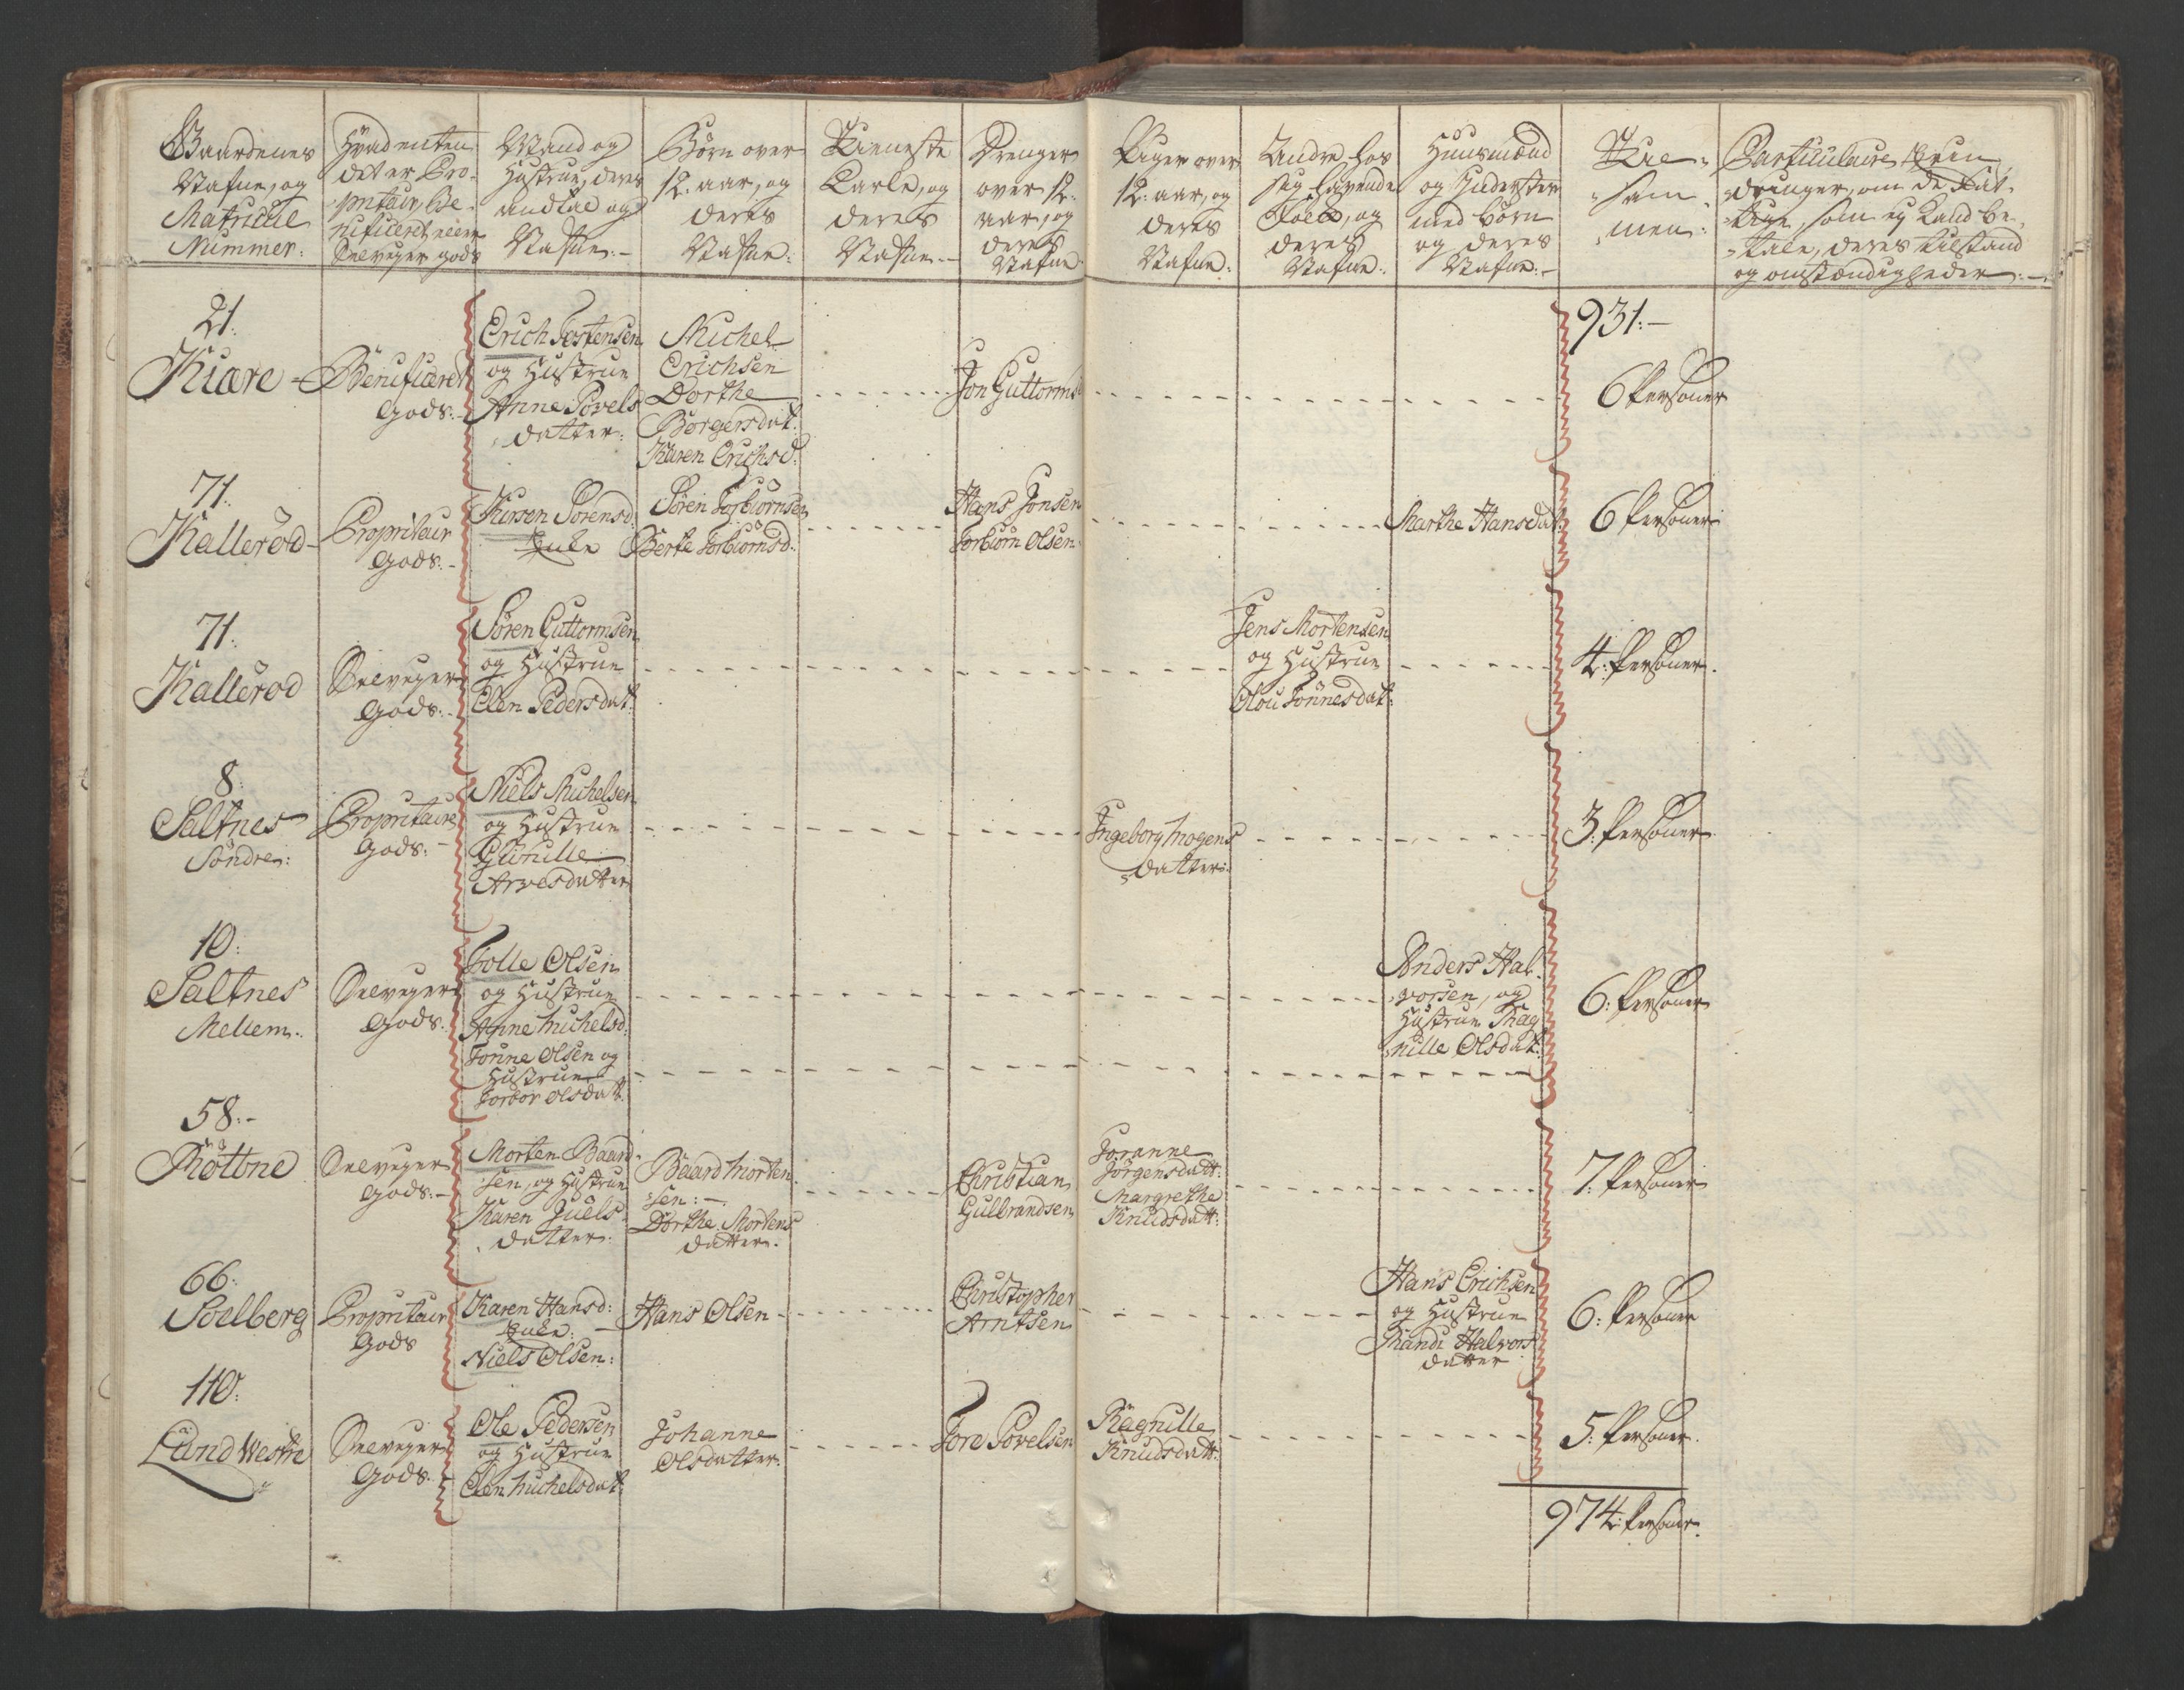 Gaardenes
Nafne, og
Matricul
Nummer:
Hvad enten
det er Pro-
pritair, Be-
nificeret, eller
Selveyer gods
Mand og
Hustrue, deres
andtal og
Nafne:-
Børn over
12. aar, og
deres
Nafne:
Tieneste
Karle, og
deres
Nafne:-
Drenger
over 12.
aar, og
deres
Nafne
Piger over
12. aar, og
deres
Nafne:
Andre hos
sig havende
Folck, og
deres
Nafne:
Huusmænd
og Inderster
med børn
og deres
Nafne:-
Til-
sam-
men:
Particulaire Erin-
dringer, om de Fat-
tige, som ey kand be-
tale, deres tilstand
og omstændigheder:-
931:-
21:
Kiære-
Benificeret
gods:-
Erich Tostensen
og Hustrue
Anne Povels
datter:
Michel
Erichsen
Dorthe
Børgersdat:
Karen Erichsd:
Jon Guttorms:
6 Personer
71:
Kallerød-
Propritair
gods:-
Kirsen Sörensd:
Enke
Sören Torbiörnsen
Berte Torbiörnsd:
Hans Jonsen
Torbiörn Olsen
Marthe Hansdat:
6 Personer
71:
Kallerød
Selveyer
gods:-
Sören Guttormsen
og Hustrue
Elen Pedersdat:
Jens Mortensen
og Hustrue
Olou Tönnesdat:
4: Personer.
8:
Saltnes
Söndre:
Propritaire
gods:-
Niels Michelsen
og Hustrue
Gunille
Arvesdatter
Ingeborg Mogens
datter:
3: Personer.
10:
Saltnes
Mellem:
Selveyer
gods:
Tolle Olsen
og Hustrue
Anne Michelsd:
Tönne Olsen og
Hustrue
Torbor Olsdatt:
Anders Hal-
vorsen, og
Hustrue Rag-
nille Olsdat:
6: Personer
58:-
Röttne
Selveyer
gods:-
Morten Baard-
sen, og Hustrue
Karen Juels-
datter:
Baard Morten-
sen:-
Dorthe Mortens
datter.
Christian
Gulbrandsen
Joranne
Jörgensdatt:
Margrethe
Knudsdatt:
7: Personer
66:
Soelberg
Propritair
gods
Karen Hansd:
Enke:
Niels Olsen:
Hans Olsen
Christopher
Arntsen
Hans Erichsen
og Hustrue
Randi Halvors
datter
6: Personer
110:
Lund Westre
Selveyer
gods:
Ole Pedersen
og Hustrue
Elen Michelsdat:
Johanne
Olsdatter:
Tore Povelsen
Ragnille
Knudsdatt:
5: Personer.
974: Personer.